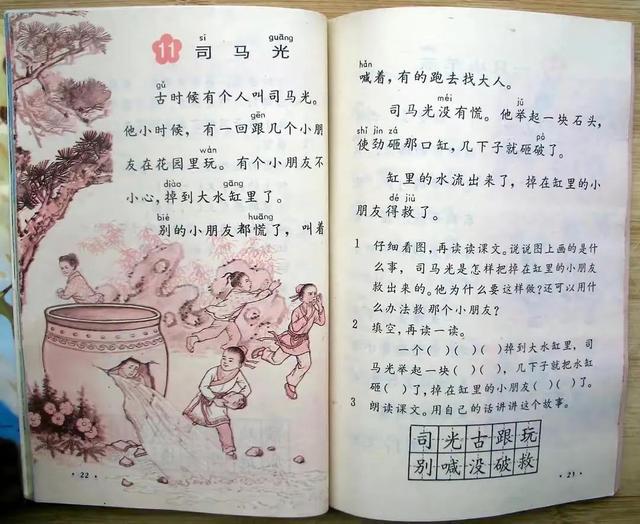 sī guāng
11 司马光
gǔ
古时候有个人叫司马光。
gēn
他小时候,有一回跟几个小朋
wán
友在花园里玩。有个小朋友不
diào gāng
小心,掉到大水缸里了。
bié huāng
别的小朋友都慌了,叫着
· 22 ·
hǎn
喊着,有的跑去找大人。
méi jǔ
司马光没有慌。他举起一块石头,
shǐ jìn zá pò
使劲砸那口缸,几下子就砸破了。
缸里的水流出来了,掉在缸里的小
dé jiù
朋友得救了。
1 仔细看图,再读读课文。说说图上画的是什
么事,司马光是怎样把掉在缸里的小朋友
救出来的。他为什么要这样做?还可以用什
么办法救那个小朋友?
2 填空,再读一读。
一个( )( )( )掉到大水缸里,司
马光举起一块( )( ),几下子就把水缸
砸( )了,掉在缸里的小朋友( )( )了。
3 朗读课文。用自己的话讲讲这个故事。
司光古跟玩
别喊没破救
· 23 ·